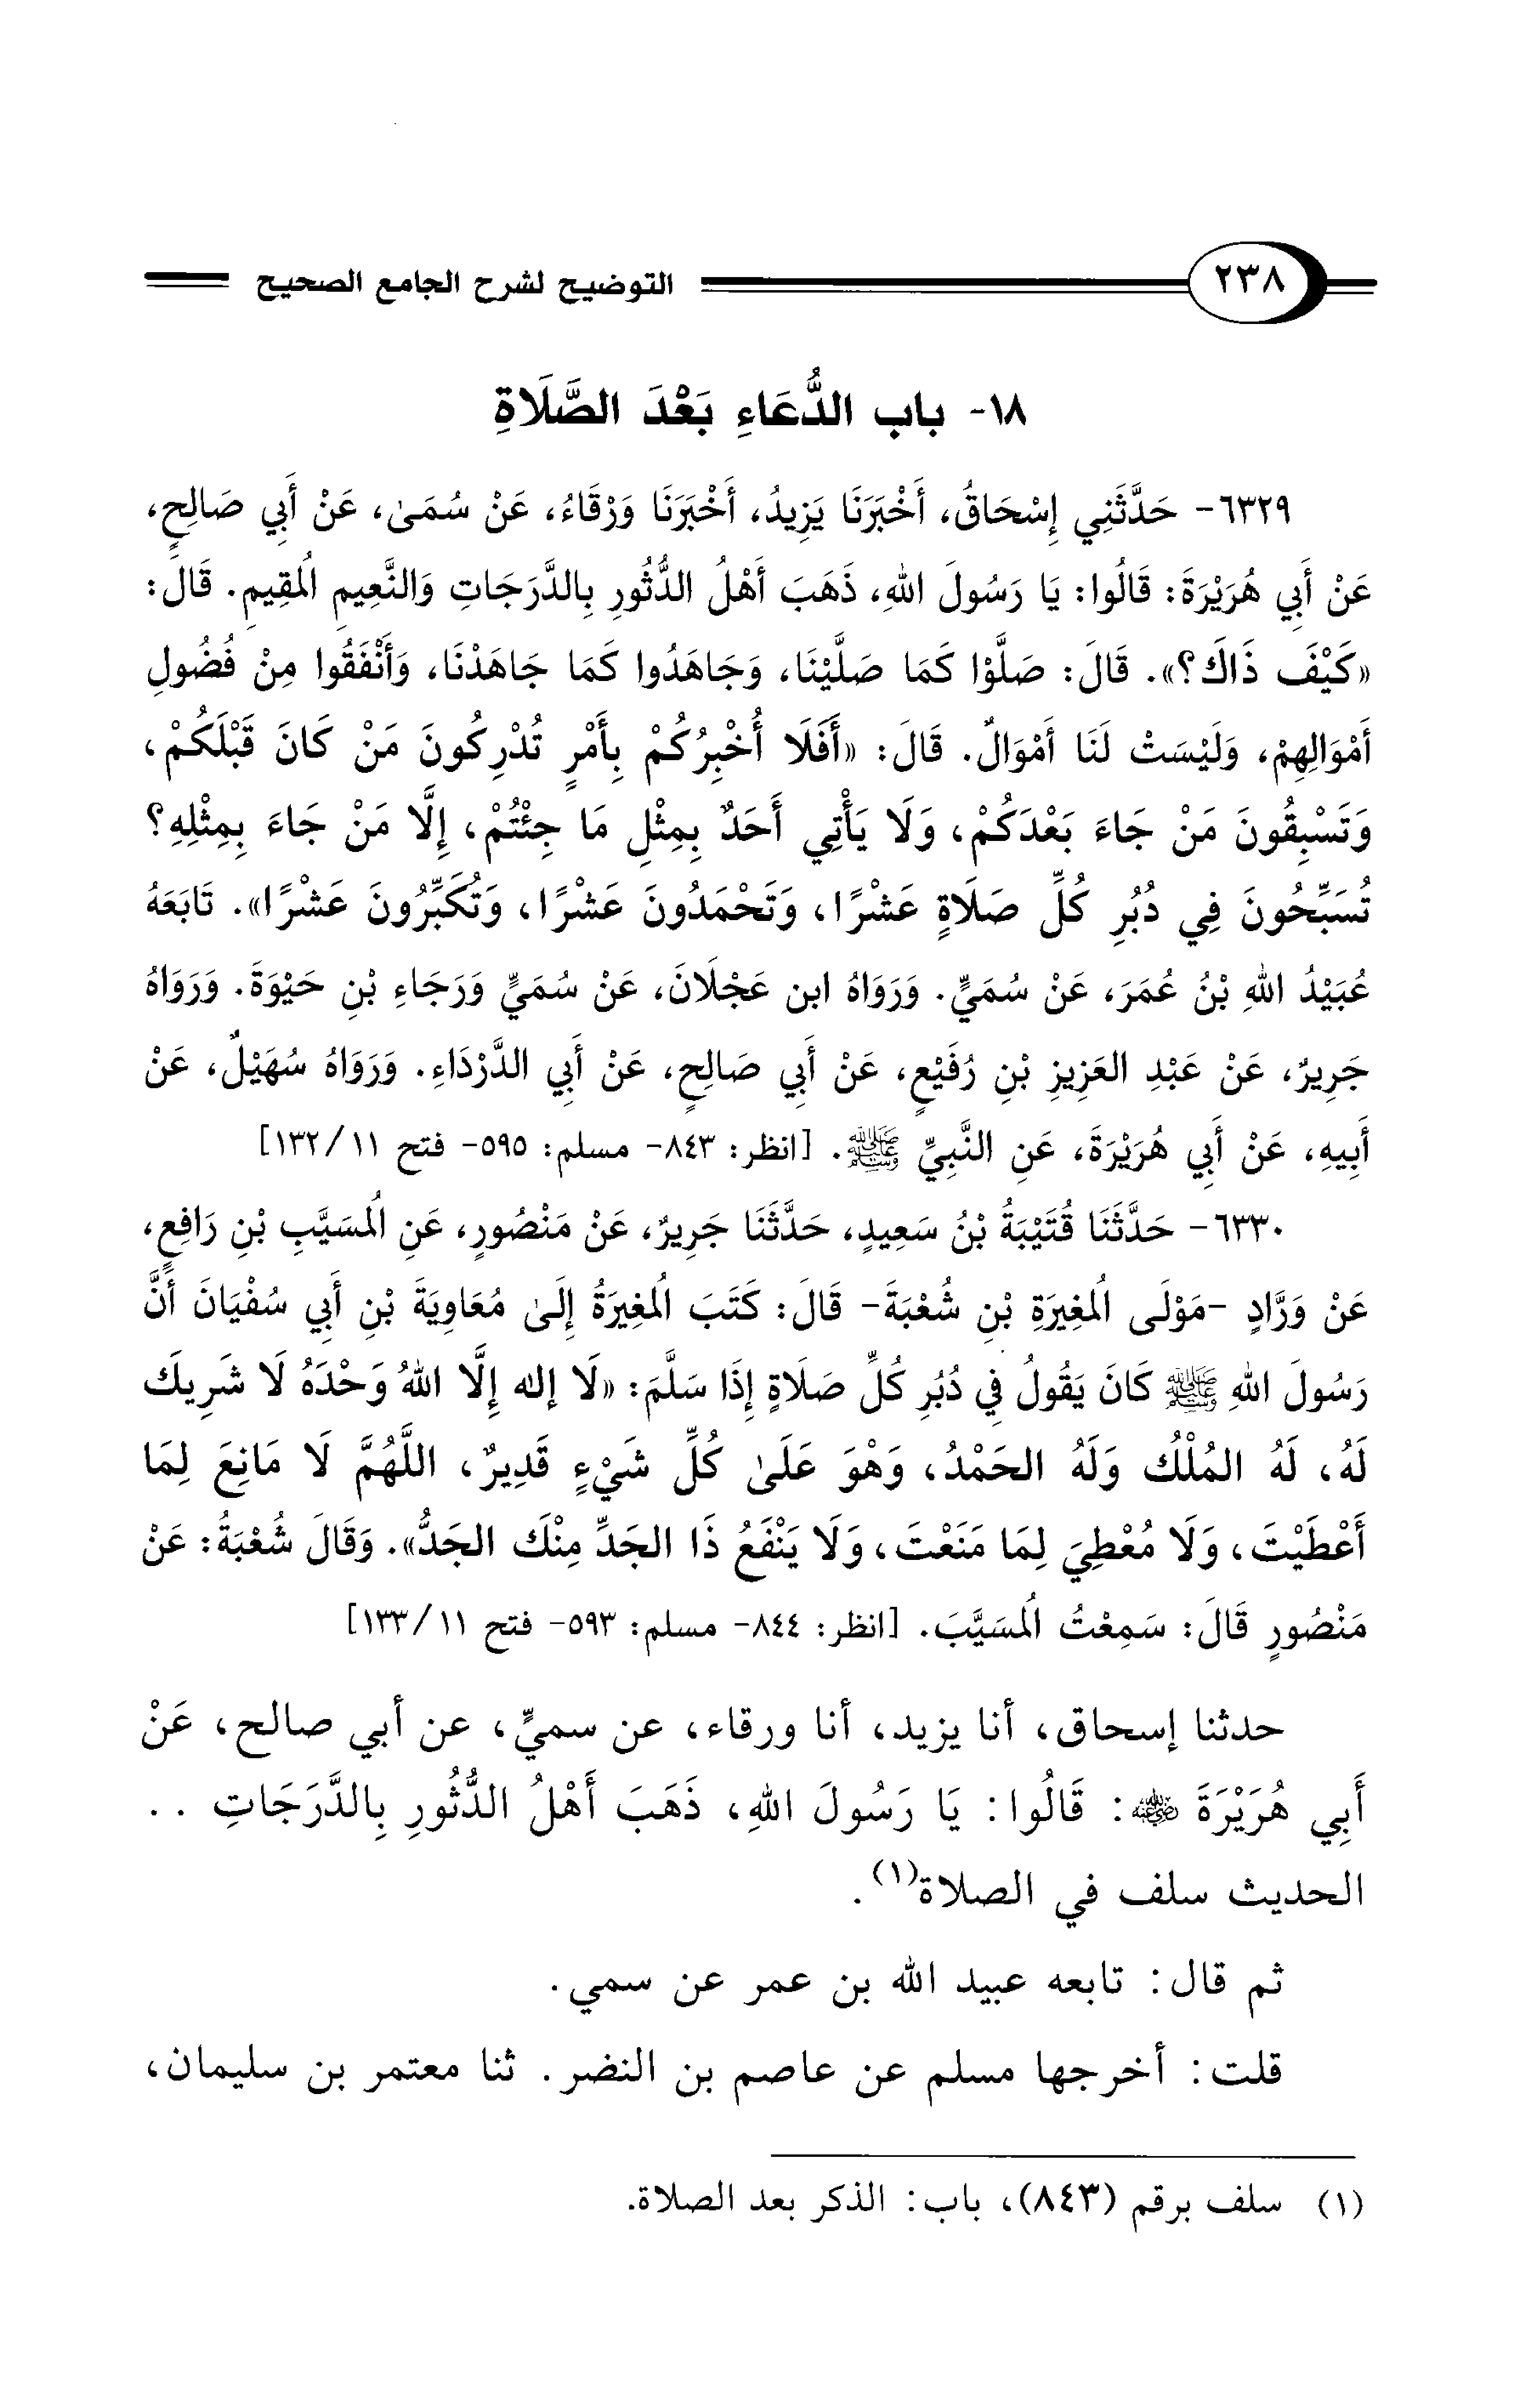 ٢٣٨ التوضيح لشرح الجامع الصحيح
١٨- باب الدُّعَاءِ بَعْدَ الصَّلَاةِ
٦٣٢٩- حَدَّثَنِي إِسْحَاقُ، أَخْبَرَنَا يَزِيدُ، أَخْبَرَنَا وَرْقَاءُ، عَنْ سُمَىٰ، عَنْ أَبِي صَالِحٍ،
عَنْ أَبِي هُرَيْرَةَ: قَالُوا: يَا رَسُولَ اللهِ، ذَهَبَ أَهْلُ الدُّثُورِ بِالدَّرَجَاتِ وَالنَّعِيمِ الُمقِيمِ. قَالَ:
«كَيْفَ ذَاكَ؟». قَالَ: صَلَّوْا كَمَا صَلَّيْنَا، وَجَاهَدُوا كَمَا جَاهَدْنَا، وَأَنْفَقُوا مِنْ فُضُولِ
أَمْوَالِهِمْ، وَلَيْسَتْ لَنَا أَمْوَالٌ. قَالَ: «أَفَلَا أُخْبِرُكُمْ بِأَمْرٍ تُدْرِكُونَ مَنْ كَانَ قَبْلَكُمْ،
وَتَسْبِقُونَ مَنْ جَاءَ بَعْدَكُمْ، وَلَا يَأْتِي أَحَدٌ بِمِثْلِ مَا جِئْتُمْ، إِلَّا مَنْ جَاءَ بِمِثْلِهِ؟
تُسَبِّحُونَ فِي دُبُرِ كُلِّ صَلَاةٍ عَشْرًا، وَتَحْمَدُونَ عَشْرًا، وَتُكَبِّرُونَ عَشْرًا». تَابَعَهُ
عُبَيْدُ اللهِ بْنُ عُمَرَ، عَنْ سُمَيٍّ. وَرَوَاهُ ابن عَجْلَانَ، عَنْ سُمَيٍّ وَرَجَاءِ بْنِ حَيْوَةَ. وَرَوَاهُ
جَرِيرٌ، عَنْ عَبْدِ العَزِيزِ بْنِ رُفَيْعٍ، عَنْ أَبِي صَالِحٍ، عَنْ أَبِي الدَّرْدَاءِ. وَرَوَاهُ سُهَيْلٌ، عَنْ
أَبِيهِ، عَنْ أَبِي هُرَيْرَةَ، عَنِ النَّبِيِّ ﷺ. [انظر: ٨٤٣- مسلم: ٥٩٥- فتح ١١/ ١٣٢]
٦٣٣٠- حَدَّثَنَا قُتَيْبَةُ بْنُ سَعِيدٍ، حَدَّثَنَا جَرِيرٌ، عَنْ مَنْصُورٍ، عَنِ الُمسَيَّبِ بْنِ رَافِعٍ،
عَنْ وَرَّادٍ -مَوْلَى الُمغِيرَةِ بْنِ شُعْبَةَ- قَالَ: كَتَبَ الُمغِيرَةُ إِلَىٰ مُعَاوِيَةَ بْنِ أَبِي سُفْيَانَ أَنَّ
رَسُولَ اللهِ ﷺ كَانَ يَقُولُ فِي دُبُرِ كُلِّ صَلَاةٍ إِذَا سَلَّمَ: «لَا إله إِلَّا اللهُ وَحْدَهُ لَا شَرِيكَ
لَهُ، لَهُ المُلْكُ وَلَهُ الحَمْدُ، وَهْوَ عَلَىٰ كُلِّ شَيْءٍ قَدِيرٌ، اللَّهُمَّ لَا مَانِعَ لِمَا
أَعْطَيْتَ، وَلَا مُعْطِيَ لِمَا مَنَعْتَ، وَلَا يَنْفَعُ ذَا الجَدِّ مِنْكَ الجَدُّ». وَقَالَ شُعْبَةُ: عَنْ
مَنْصُورٍ قَالَ: سَمِعْتُ الُمسَيَّبَ. [انظر: ٨٤٤- مسلم: ٥٩٣- فتح ١١/ ١٣٣]
حدثنا إسحاق، أنا يزيد، أنا ورقاء، عن سميٍّ، عن أبي صالح، عَنْ
أَبِي هُرَيْرَةَ رضي الله عنه: قَالُوا: يَا رَسُولَ اللهِ، ذَهَبَ أَهْلُ الدُّثُورِ بِالدَّرَجَاتِ ..
الحديث سلف في الصلاة(١).
ثم قال: تابعه عبيد الله بن عمر عن سمي.
قلت: أخرجها مسلم عن عاصم بن النضر. ثنا معتمر بن سليمان،
(١) سلف برقم (٨٤٣)، باب: الذكر بعد الصلاة.